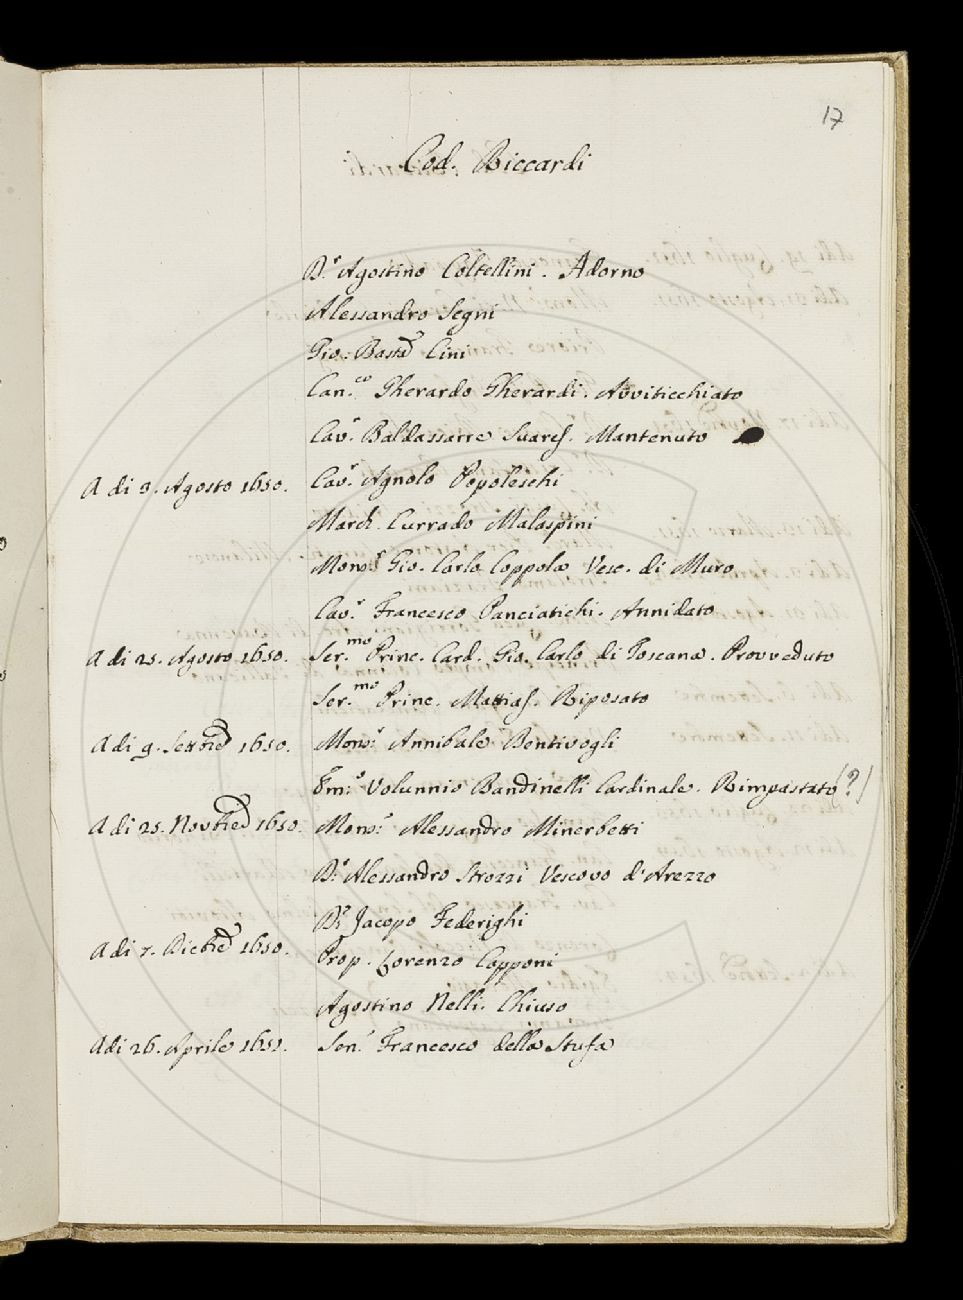 17
Cod. Riccardi
D.r Agostino Coltellini. Adorno
Alessandro Segni
Gio: Batta Cini
Can.co Gherardo Gherardi. Avviticchiato
Cav.r Baldassarre Suares. Mantenuto
A di 3. Agosto 1650. Cav.r Agnolo Popoleschi
March. Currado Malaspini
Mons.r Gio. Carlo Coppola Vesc. di Muro
Cav.r Francesco Panciatichi. Annidato
A di 25. Agosto 1650. Ser.mo Princ. Card. Gio. Carlo di Toscana. Provveduto
Ser.mo Princ. Mattias. Riposato
A di 9. Settbre 1650. Mons.r Annibale Bentivogli
Em.o Volunnio Bandinelli Cardinale. Rimpastato (?)
A di 25. Novbre 1650. Mons.r Alessandro Minerbetti
D.r Alessandro Strozzi Vescovo d'Arezzo
D.r Jacopo Federighi
A di 7. Dicbre 1650. Prop. Lorenzo Capponi
Agostino Nelli. Chiuso
A di 26. Aprile 1651. Sen.r Francesco della Stufa